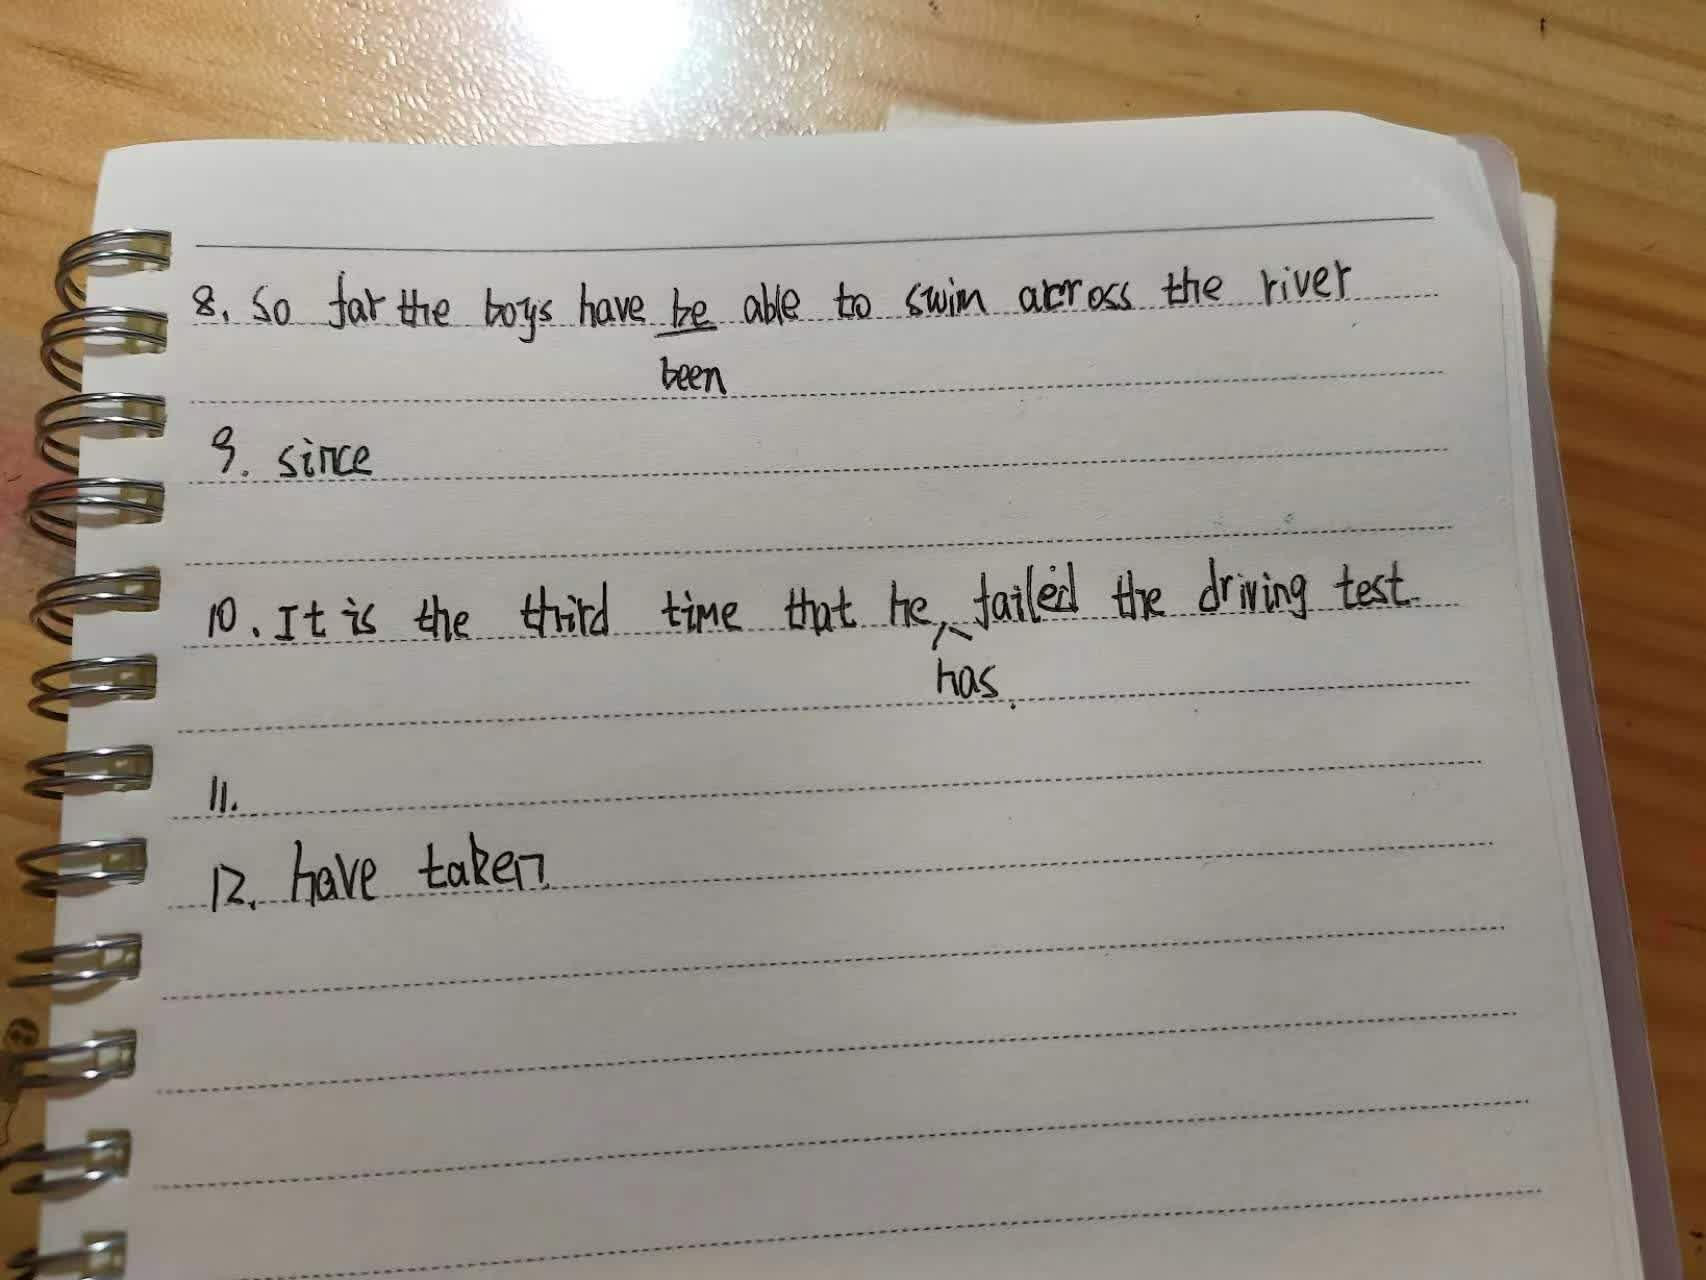 8. So far the boys have be able to swim across the river
been
9. since
10. It is the third time that he failed the driving test.
has.
11.
12. have taken.